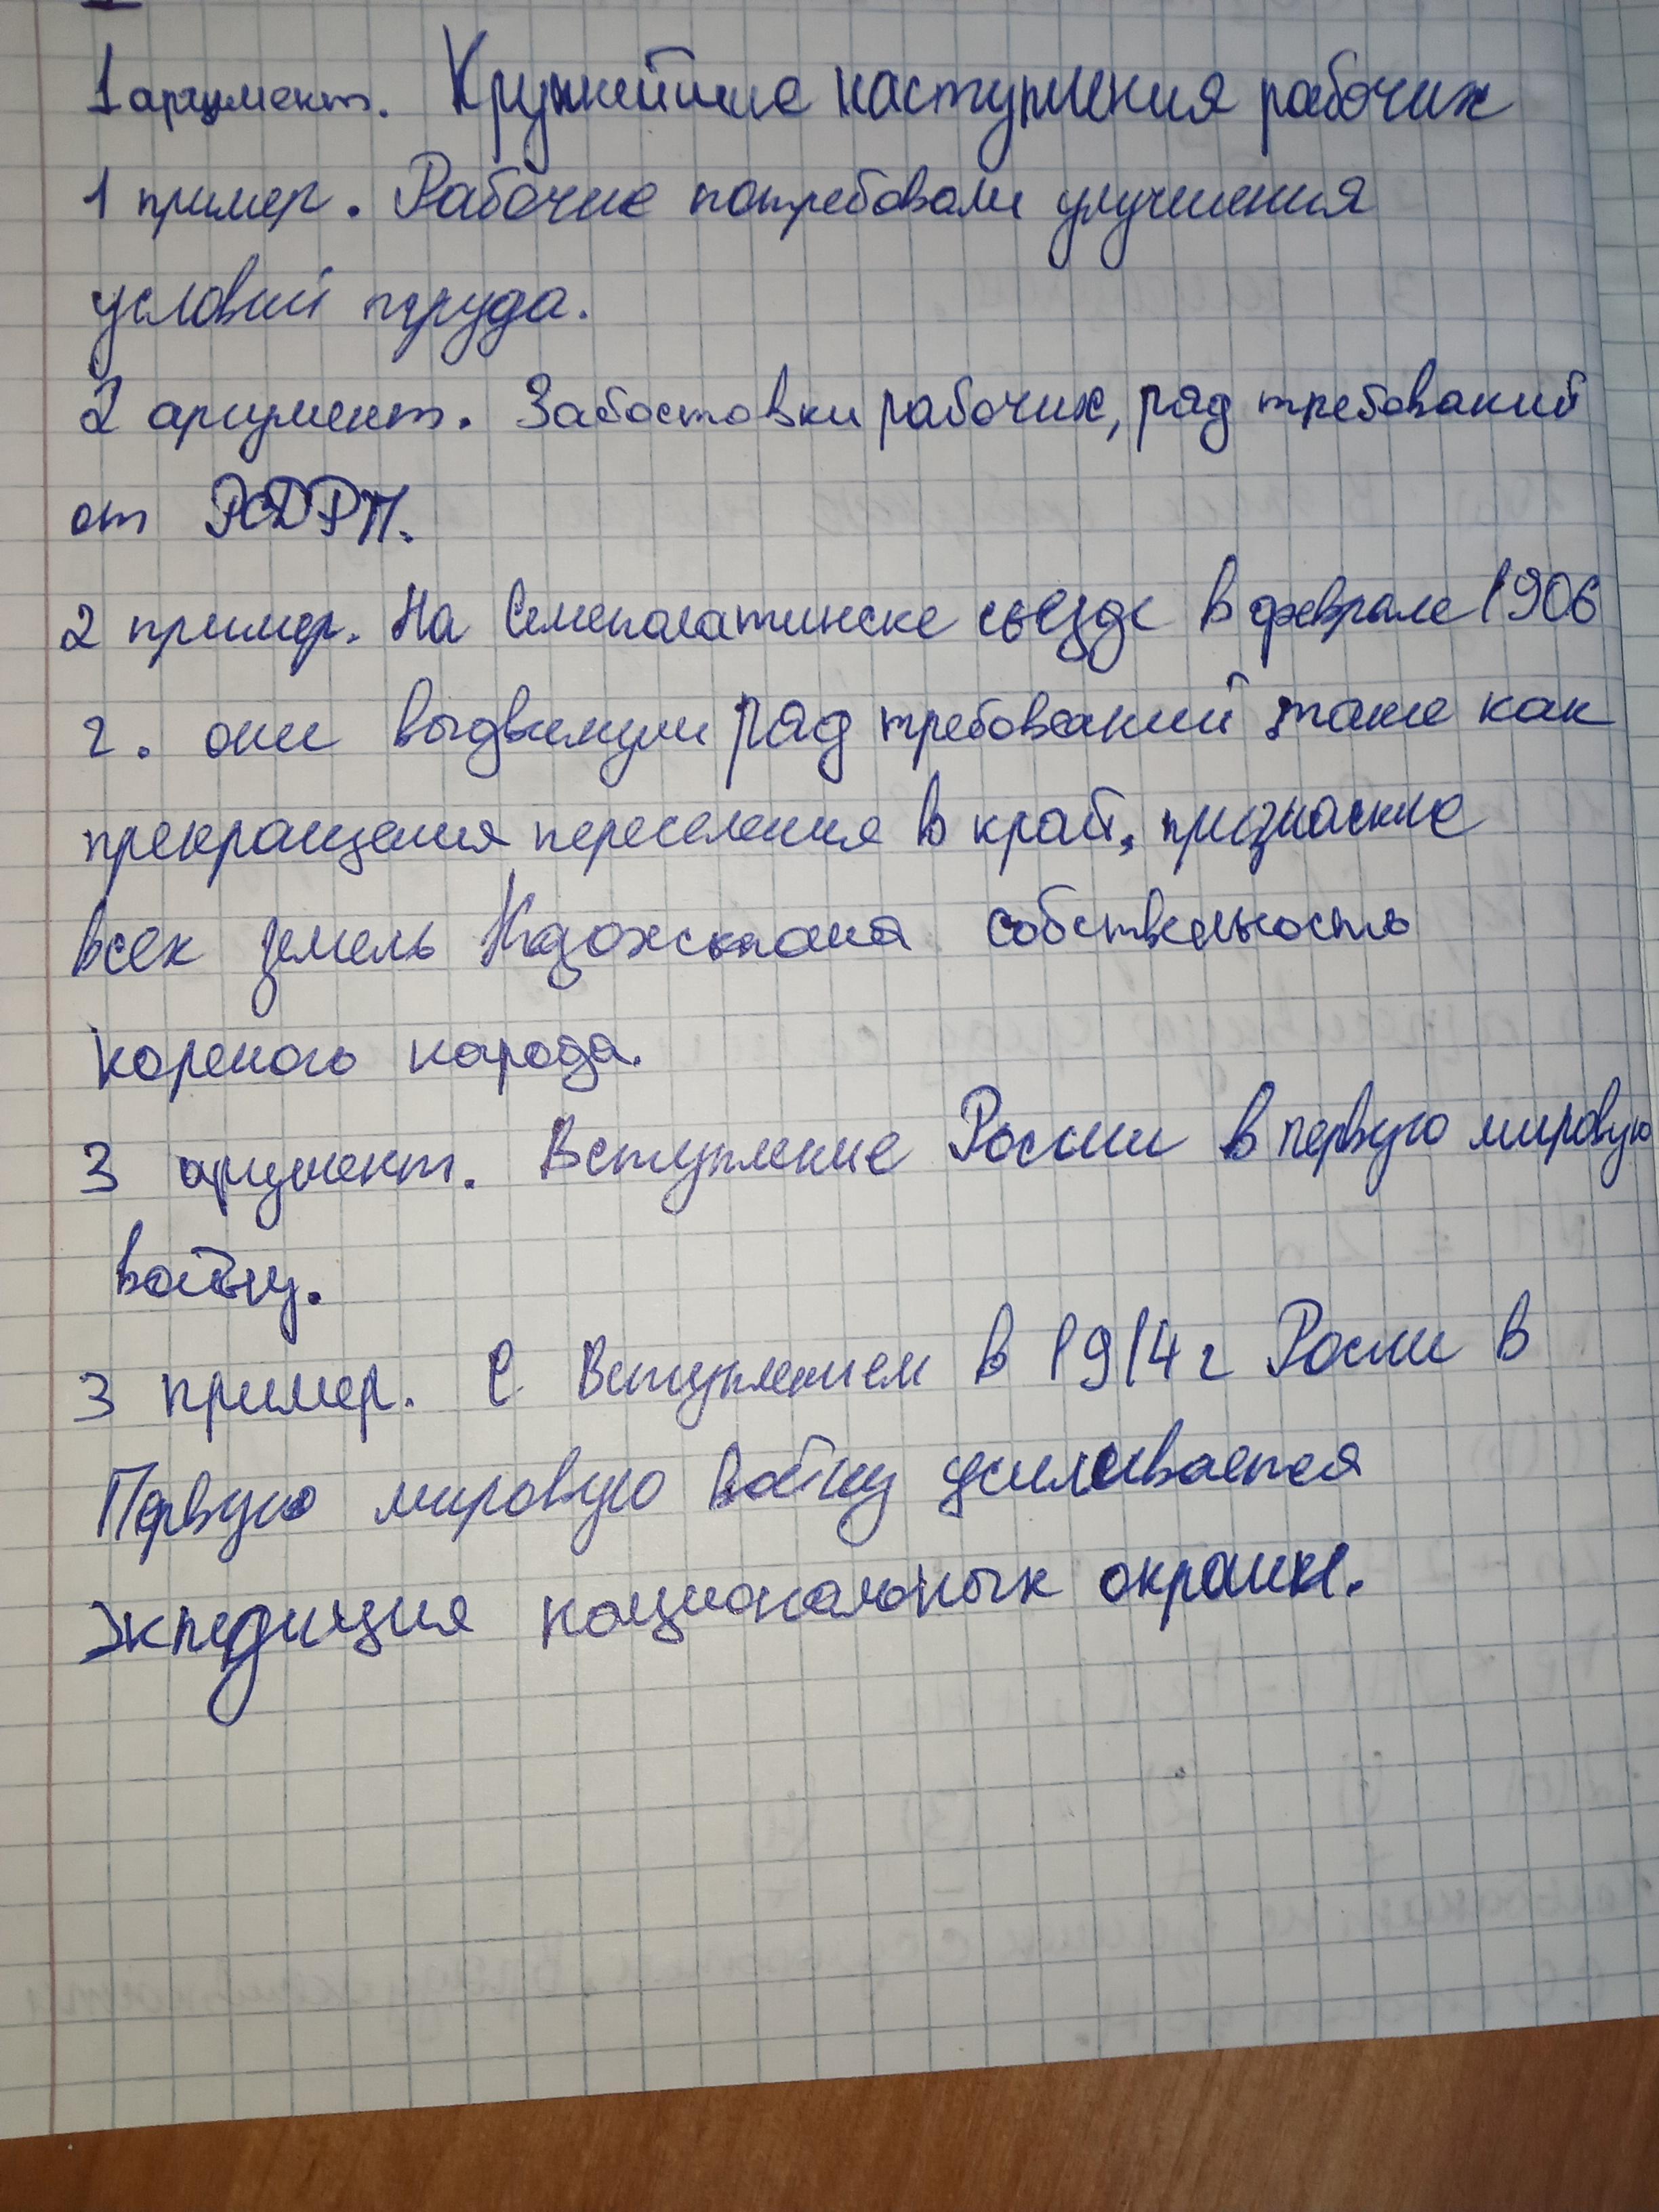 1 аргумент. Кружнейшие наступления рабочих
1 пример. Рабочие потребовали улучшения
условий труда.
2 аргумент. Забостовки рабочих, ряд требований
от РСДРП.
2 пример. На Семепалатинске сьезде в феврале 1906
г. они выдвинули ряд требований такие как
прекращения переселения в край, признание
всех земель Казохстана собственость
кореного народа.
3 аргумент. Вступление России в первую мировую
войну.
3 пример. С Вступлением в 1914 г Росии в
Первую мировую войну усиливается
экпедиция национальных окраин.